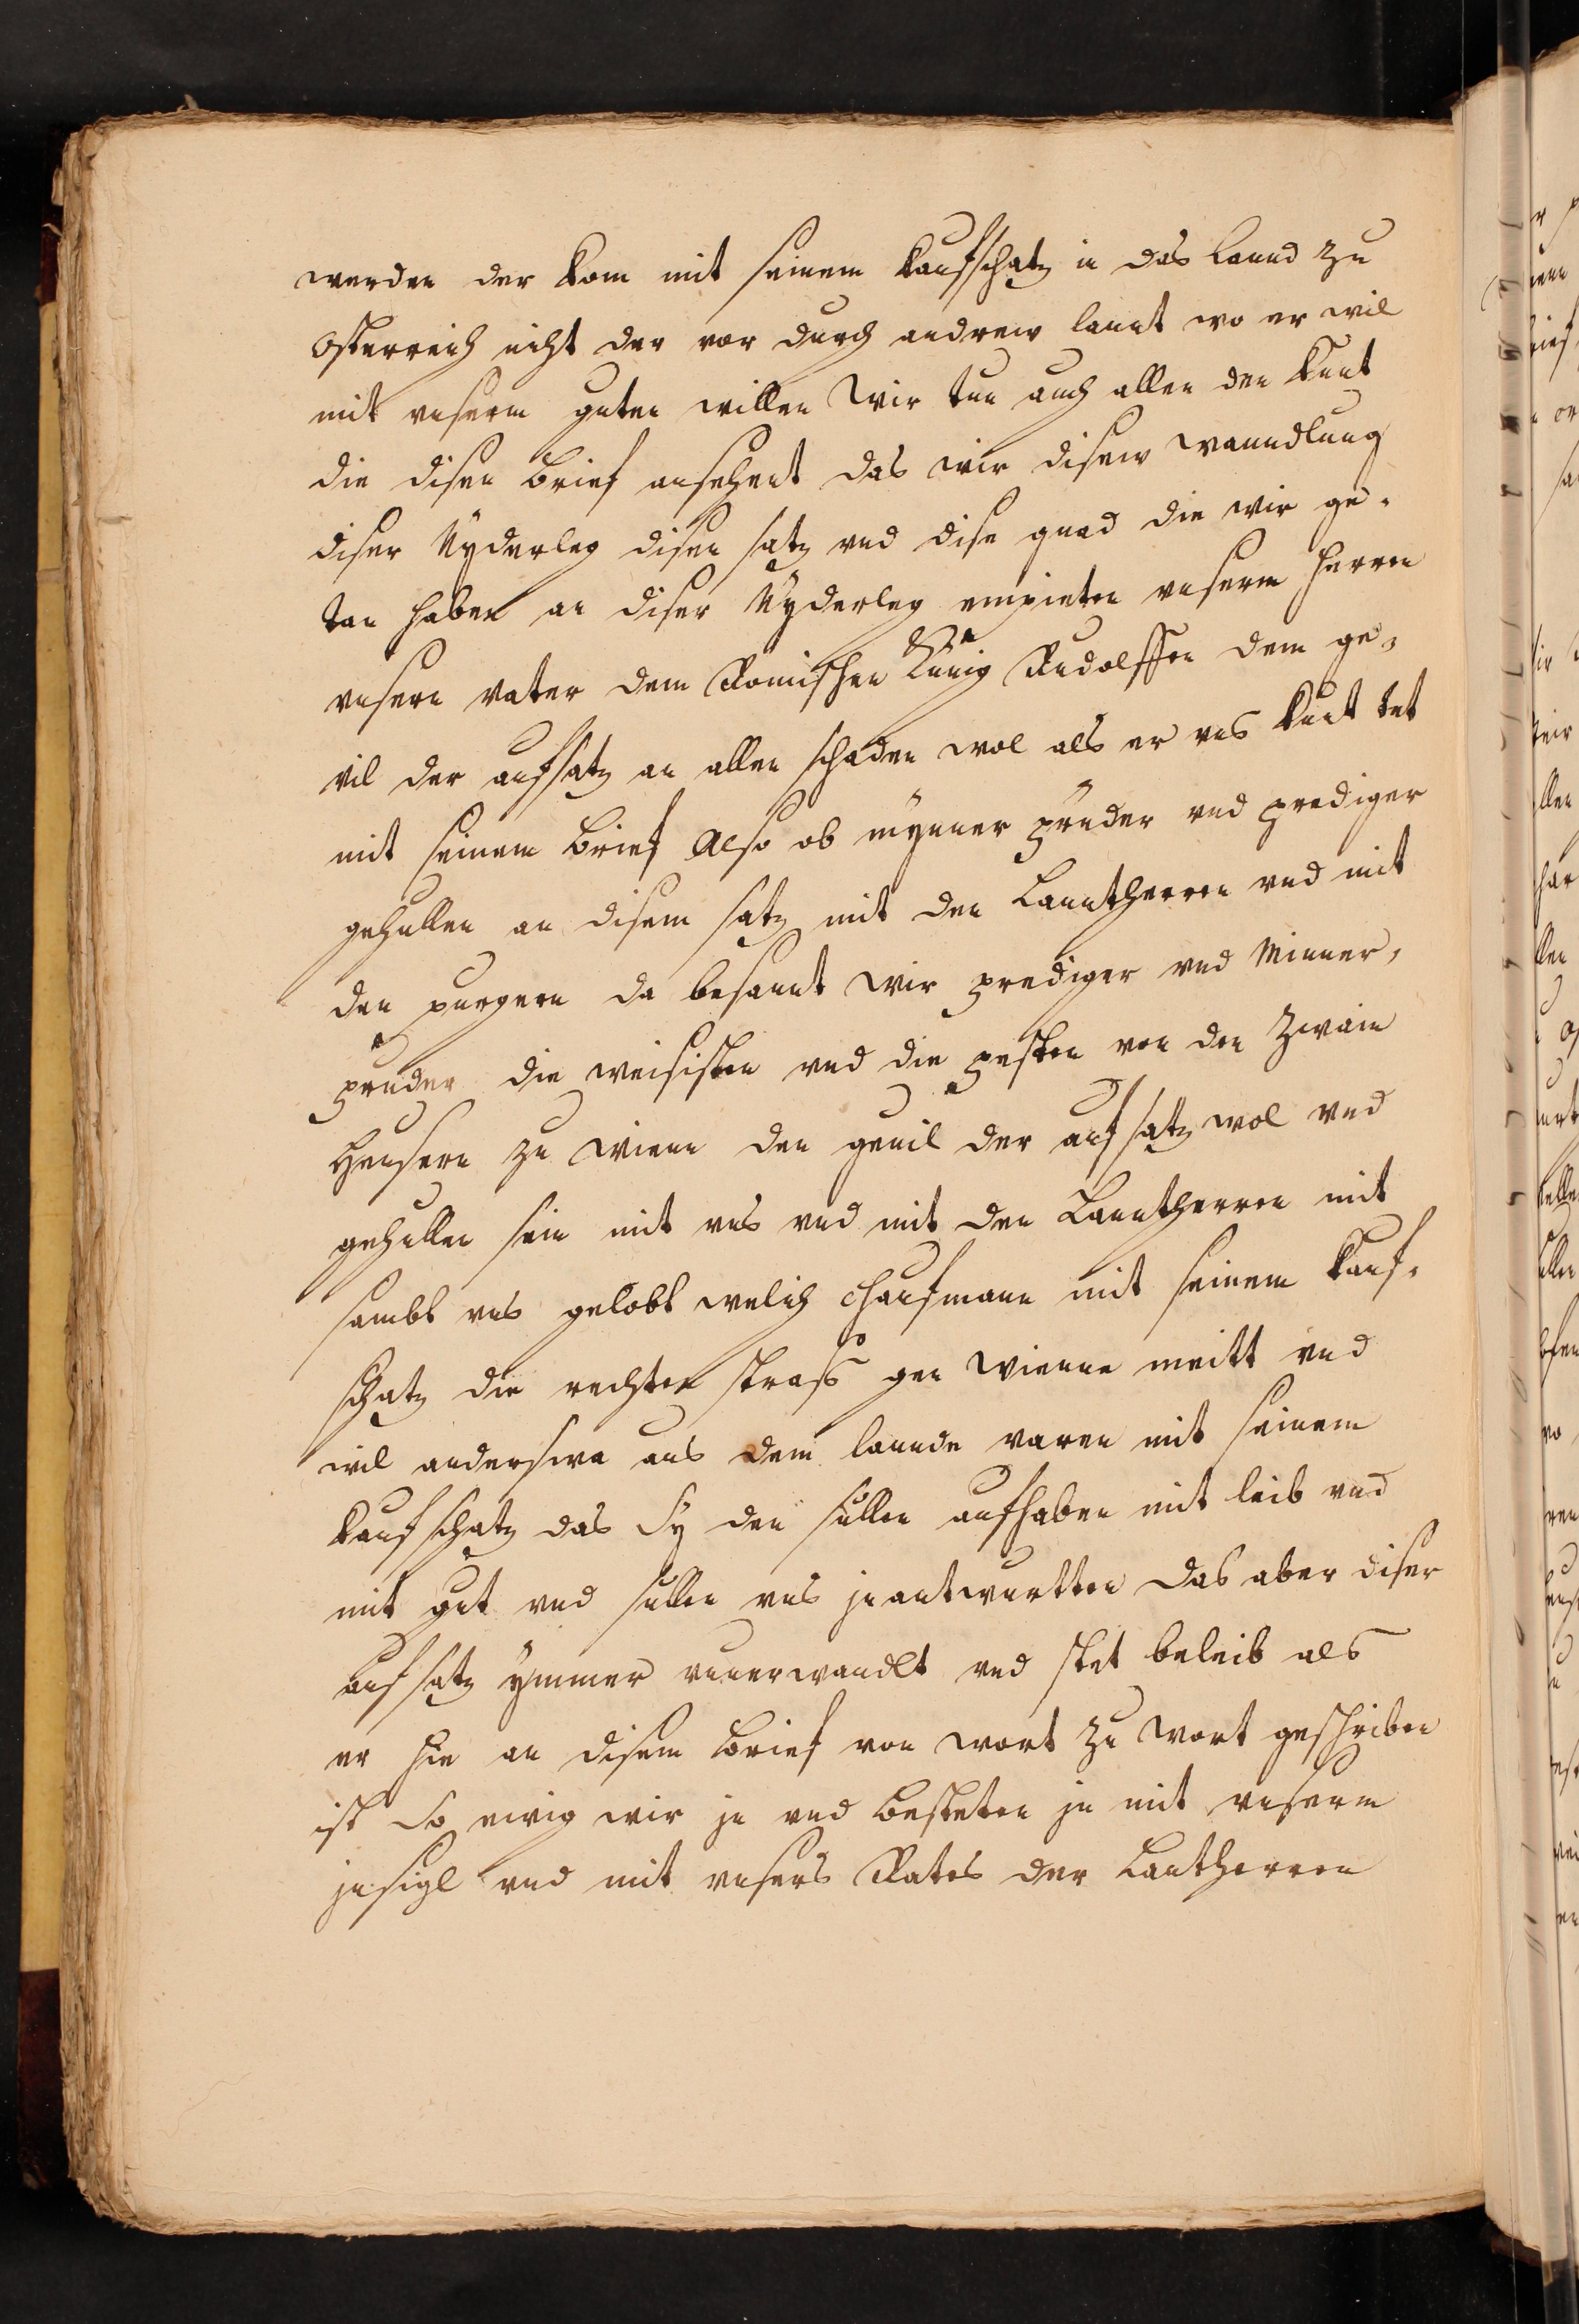 werden der kom mit seinem kaufschatz in das lannd zu
Osterreich nicht der var durch andrew lannt wo er wil
mit vnserm guten willen Wir tun auch allen den kunt
die disen brief ansehent das wir disew wanndlung
diser Nyderleg disen satz vnd dise gnad die wir ge-
tan haben an diser Nyderleg empieten vnserm herren
vnserm vater dem Romischen Künig Rudolffen dem ge-
vil der aufsatz an allen schaden wol als er vns kunt tet
mit seinem brief Also ob mynner prüder vnd prediger
gehullen an disem satz mit den Lanntherren vnd mit
den purgern da besannt wir prediger vnd Minner-
pruder die weisisten vnd die pesten von den zwain
Hensern zu wienn den geuil der aufsatz wol vnd
gehullen sein mit vns vnd mit den Lanntherren mit
sambt vns gelobt welich chaufmann mit seinem kauf-
schatz die rechten strass gen wienne meitt vnd
wil anderswa aus dem lannde varen mit seinem
kaufschatz das Sy den süllen aufhaben mit leib vnd
mit gut vnd süllen vns jnantwurtten das aber diser
aufsatz ymmer vnuerwandlt vnd stet beleib als
er hie an disem brief von wort zu wort geschriben
ist So ewig wir jn vnd besteten jn mit vnserm
jnsigl vnd mit vnsers Rates der Lantherren